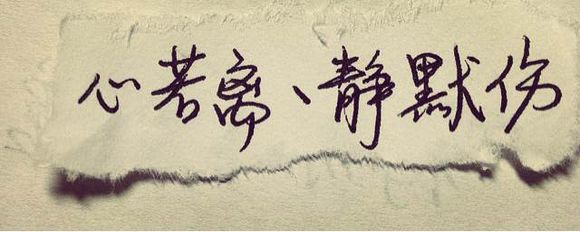 心若离、静默伤